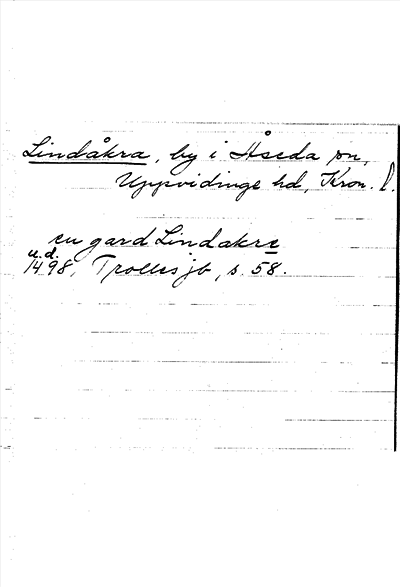 Lindåkra, by i Åseda sn,
Uppvidinge hd, Kron. l.
en gard Lindakre
u.d.
1498, Trolles jb, s. 58.